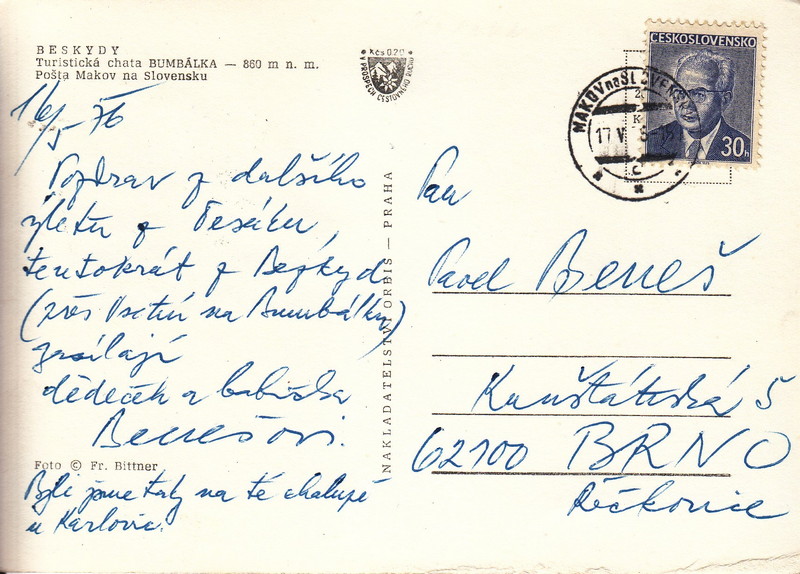 BESKYDY
Turistická chata BUMBÁLKA — 860 m n. m.
Pošta Makov na Slovensku
16/5 76
Pozdrav z dalšího
výletu z Tesáku,
tentokrát z Beskyd
(přes Vsetín na Bumbálku)
zasílají
dědeček a babička
Benešovi.
Foto © Fr. Bittner
Byli jsme taky na té chalupě
u Karlovic.
NAKLADATELSTVÍ ORBIS — PRAHA
Kčs 0.20
V PROSPĚCH CESTOVNÍHO RUCHU
ČESKOSLOVENSKO
30h
MAKOV na SLOVENSKU
17 V
c
Pan
Pavel Beneš
Kunštátská 5
62100 BRNO
Řečkovice